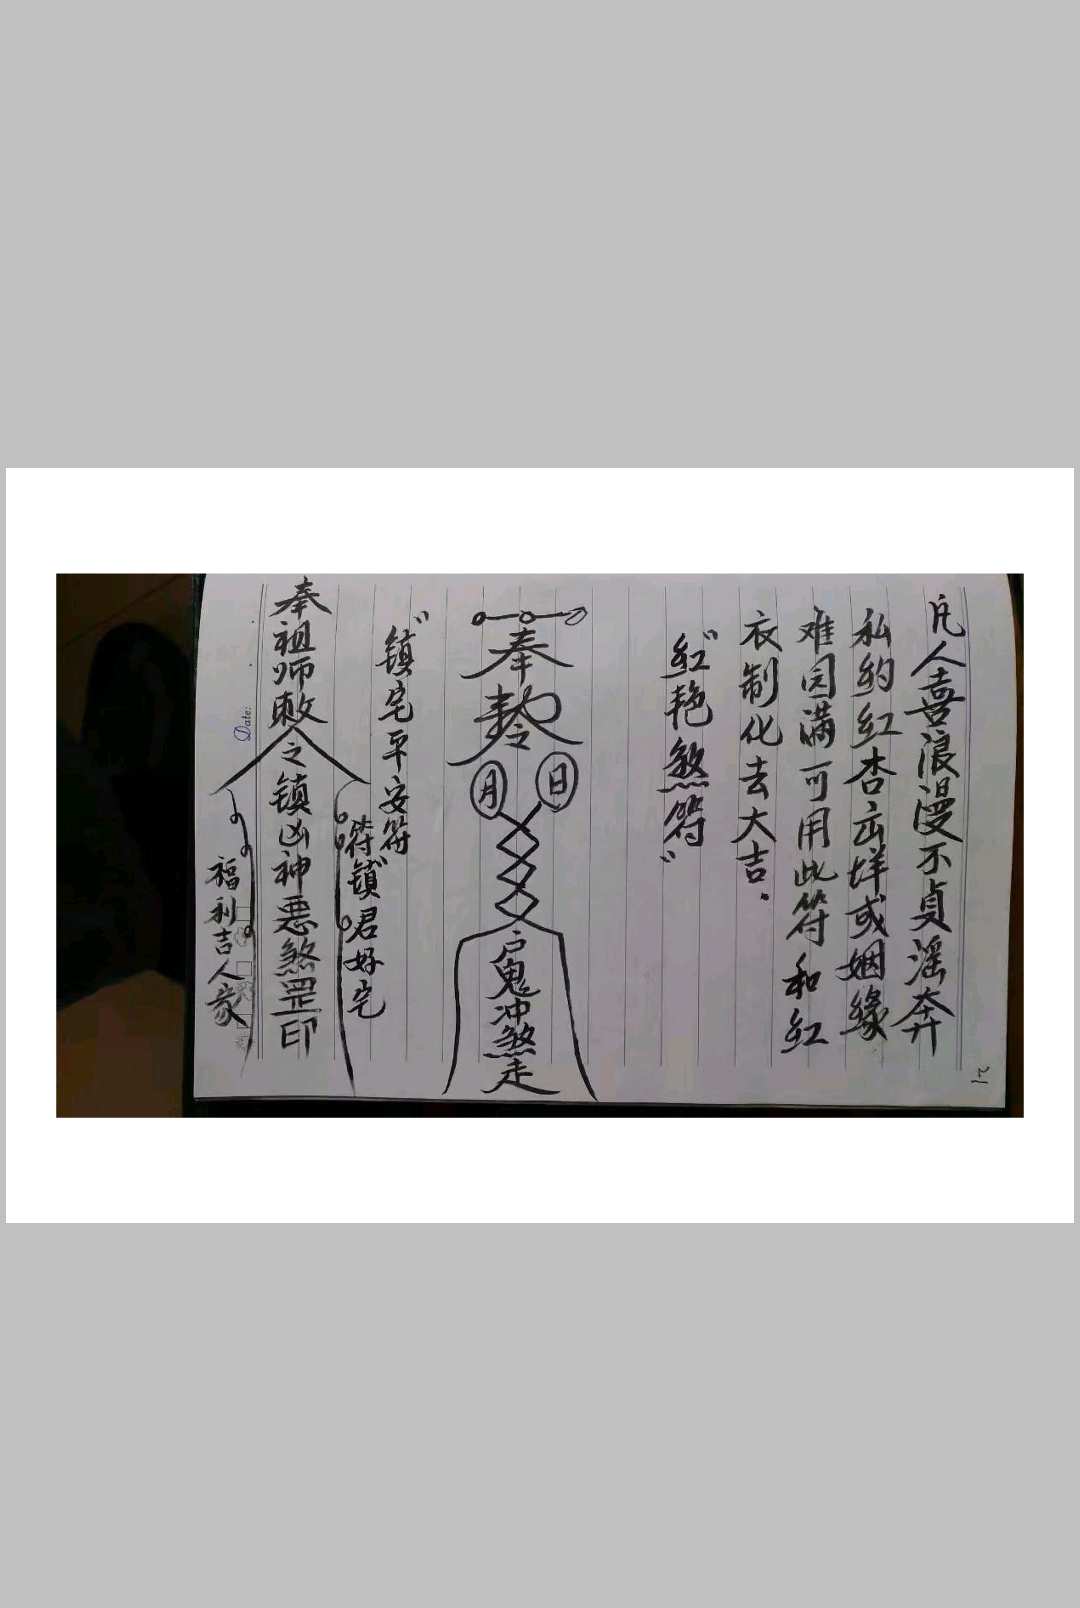 凡人喜浪漫不貞滛奔
私約红杏出墙或姻緣
难园满可用此符和红
衣制化去大吉.
"红艳煞符"
奉
日
月
鬼冲煞走
"镇宅平安符"
符镇君好宅
奉祖师敕令之镇凶神恶煞罡印
福利吉人家
Date: